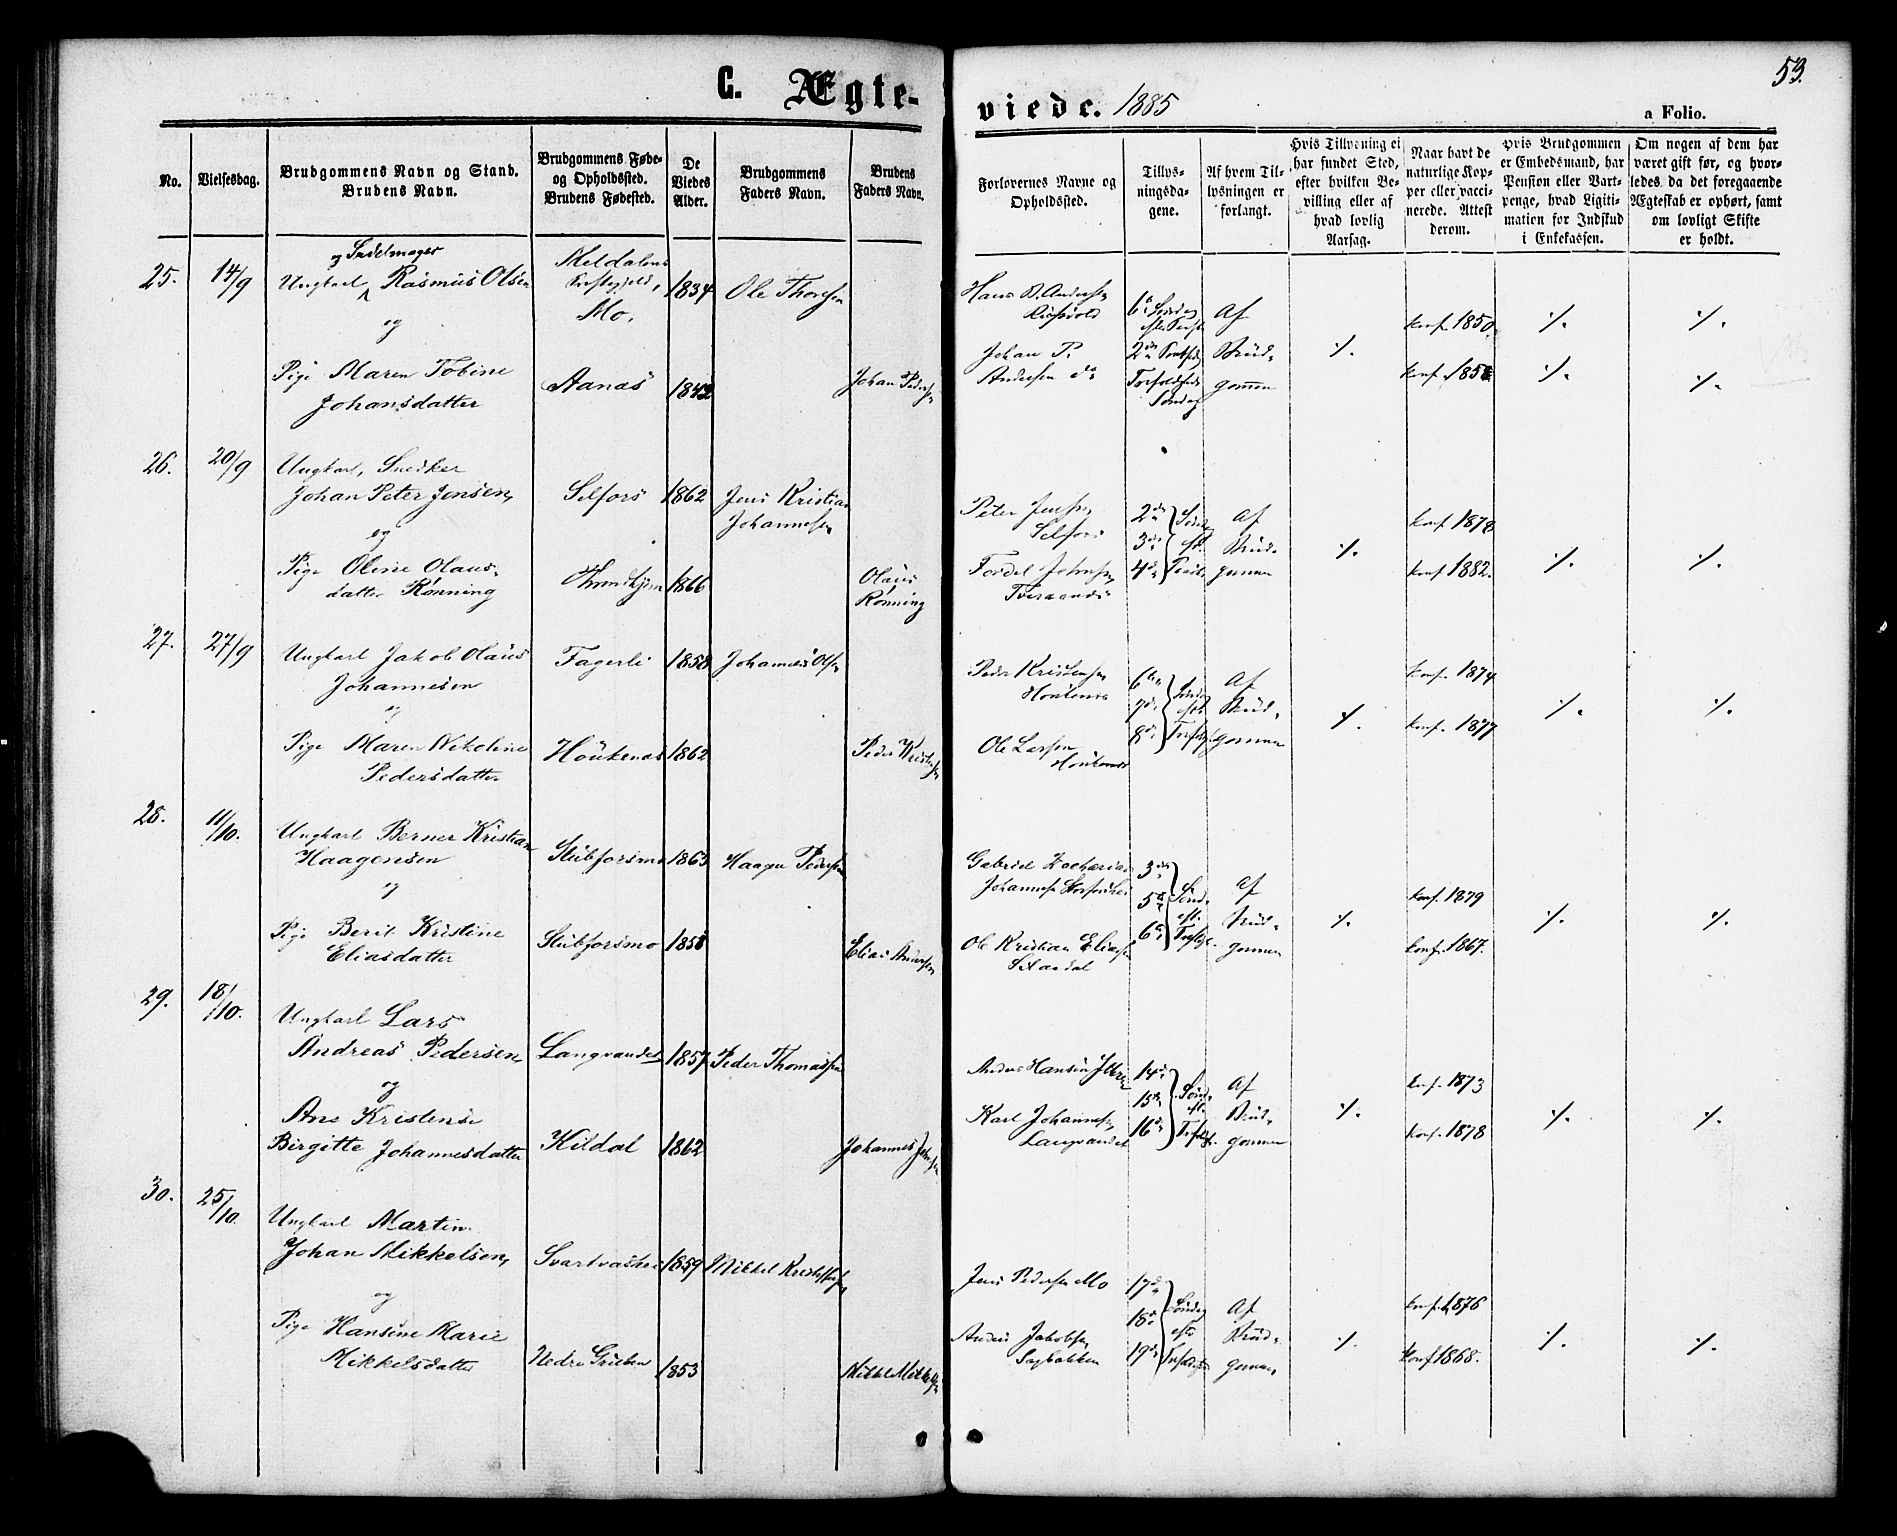 53.
C. Ægte-
viede. 1885
a Folio.
No.
Vielsesdag.
Brudgommens Navn og Stand.
Brudens Navn.
Brudgommens Føde-
og Opholdssted.
Brudens Fødested.
De
Viedes
Alder.
Brudgommens
Faders Navn.
Brudens
Faders Navn.
Forlovernes Navne og
Opholdssted.
Tillys-
ningsda-
gene.
Af hvem Til-
lysningen er
forlangt.
Hvis Tillysning ei
har fundet Sted,
efter hvilken Be-
villing eller af
hvad lovlig
Aarsag.
Naar havt de
naturlige Kop-
per eller vacci-
nerede. Attest
derom.
Hvis Brudgommen
er Embedsmand, har
Pension eller Vart-
penge, hvad Legiti-
mation for Indskud
i Enkekassen.
Om nogen af dem har
været gift før, og hvor-
ledes da det foregaaende
Ægteskab er ophørt, samt
om lovligt Skifte
er holdt.
25.
14/9
og Sadelmager
Ungkarl Rasmus Olsen
og
Pige Maren Tobine
Johansdatter
Meldalens
Præstegjeld,
Mo.
Aanæs
1834
1842
Ole Thoresen
Johan Pedersen
Hans A. Andersen
Johan P.
Andersen do
Af
Brud-
gommen
./.
konf. 1850.
konf. 1858
./.
./.
./.
./.
26.
20/9
Ungkarl, Snedker
Johan Peter Jensen,
og
Pige Oline Olaus-
datter Rønning
Selfors
Throndhjem
1862
1866
Jens Kristian
Johannesen
Olaus
Rønning
Peter Jensen
Selfors
Tordel Johnsen
Tveraanæs
2den
3die
4de
Søndag
eft.
Af
Brud-
gommen
./.
konf 1878
konf 1882.
./.
./.
27.
27/9
Ungkarl Jakob Olaus
Johannesen
og
Pige Maren Nikoline
Pedersdatter
Fagerli
Høukenæs
1858
1862
Johannes Olsen
Peder Kristensen
Peder Kristensen
Høukenæs
Ole Larsen
Høukenæs
6te
7de
8de
Søndag
eft.
Trefoldgh.
Af
Brud-
gommen
./.
konf. 1874
konf. 1877
./.
./.
28.
11/10.
Ungkarl Berner Kristian
Haagensen
og
Pige Berit Kristine
Eliasdatter
Stubforsmo
Stubforsmo
1863
1851
Haagen Pedersen
Elias Andersen
Gabriel Zacharias
Johannesen
Ole Kristian Eliasen
3die
5te
6te
Sønd.
eft.
Trefolgh.
Af
Brud-
gommen
./.
konf. 1879
konf. 1867.
./.
./.
29.
18/10.
Ungkarl Lars
Andreas Pedersen
og
Ane Kristense
Birgitte Johannesdatter
Langvandet
Kildal
1857
1862
Peder Thomassen
Johannes Johnsen
Anders Hansen Ytteren
Karl Johannesen
Langvandet
14de
15de
16de
Sønd.
eft.
Trefoldgh.
Af
Brud-
gommen
./.
konf. 1873
konf. 1878
./.
./.
30.
25/10.
Ungkarl Martin
Johan Mikkelsen,
og
Pige Hansine Marie
Mikkelsdatter
Svartvashei
Nedre Gruben
1859
1853
Mikkel Kristoffersen
Mikkel Mikkelsen
Jens Pedersen Mo
Anders Jakobsen
Sagbakken
17de
18de
19de
Søndag
efter
Trefoldighed
Af
Brud-
gommen
./.
konf. 1876
konf 1868.
./.
./.